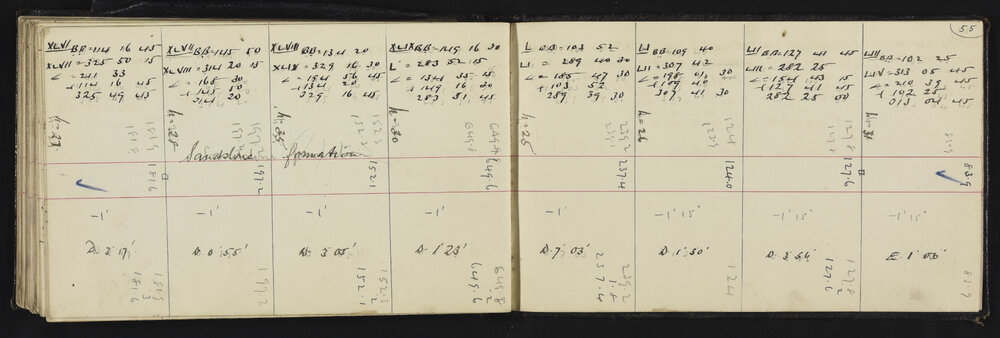 55
XLVI BB = 114 16 45
XLVII = 325 50 00
< = 211 33
+ 114 16 45
325 49 45
1819
1818
1816
-1'
D. 2° 17'
1819
3
1816
XLVII BB = 145 50
XLVIII = 314 20 15
< = 168 30
+ 145 50
314 20
h = 28
1972
197.2
-1'
D. 0° 55'
1972
XLVIII BB = 134 20
XLIX = 329 16 30
< = 194 56 45
+ 134 20
329 16 45
1523
152.1
-1'
D. 3° 05'
152.3
2
152.1
Sandstone formation
XLIX BB = 149 16 30
L = 283 52 15
< = 134 35 15
+ 149 16 30
283 51 45
h = 30
6498
649.6
-1'
D. 1° 23'
649.8
2
649.6
L BB = 103 52
LI = 289 40 30
< = 185 47 30
+ 103 52
289 39 30
h = 25
2392
237.4
-1'
D. 7° 03'
2392
1.8
237.4
LI BB = 109 40
LII = 307 42
< = 198 01 30
+ 109 40
307 41 30
h = 26
124
124.0
-1' 15"
D. 1° 30'
124
LII BB = 127 41 45
LIII = 282 25
< = 154 43 15
+ 127 41 45
282 25 00
1278
127.6
-1' 15"
D. 3° 56'
1278
2
127.6
LIII BB = 102 25
LIV = 313 05 45
< = 210 39 45
+ 102 25
313 04 45
h = 31
83.9
-1' 15"
E. 1° 06'
839